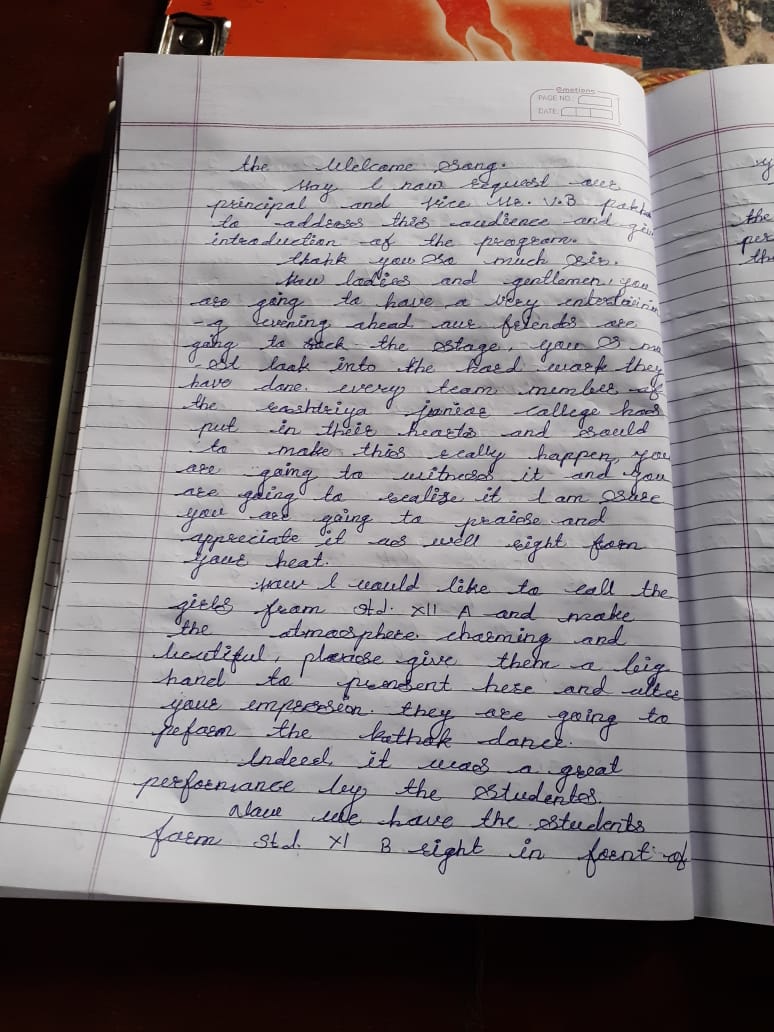 Emotions
PAGE NO.:
DATE:
the Welcome song.
May I now request our
principal and vice Mr. V.B
to address this audience and give
introduction of the program.
thank you so much sir.
Now ladies and gentlemen, you
are going to have a very entertainin
-g evening ahead our friends are
going to rock the stage, you
look into the hard work they
have done. every team member of
the rashtriya junior college has
put in their hearts and sould
to make this really happen, you
are going to witness it and you
are going to realize it I am sure
you are going to praise and
appreciate it as well right form
your heat.
Now I would like to call the
girls from std. XII A and make
the atmosphere charming and
beutiful, please give them a big
hand to present here and
your empression. they are going to
peform the kathak dance.
Indeed it was a great
performance by the students.
Now we have the students
form std. XI B right in fornt of
the
per
th